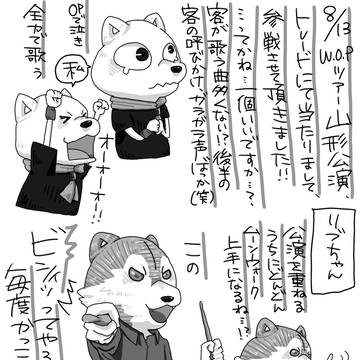 8/13
W.O.Pツアー山形公演、
トレードにて当たりまして、
参戦させて頂きました!!
…ってかね…一個いいですか…?
客が歌う曲多くない!?後半の
客の呼びかけ、ガラガラ声ばっか(笑)
OPで泣き
全力で歌う
私
オーオーオー!!
りづちゃん
公演を重ねる
うちにどんどん
ムーンウォーク
上手になるね…!?
この
ビシィッってやる
毎度かっこ